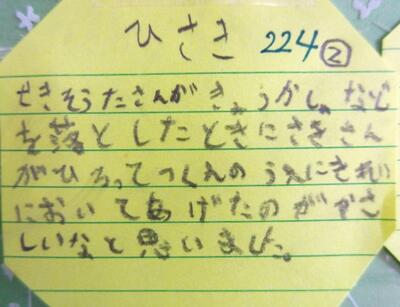 ひさき 224②
せきそうたさんがきょうかしょなど
を落としたときにさきさん
がひろってつくえのうえにきれい
においてあげたのがやさ
しいなと思いました。